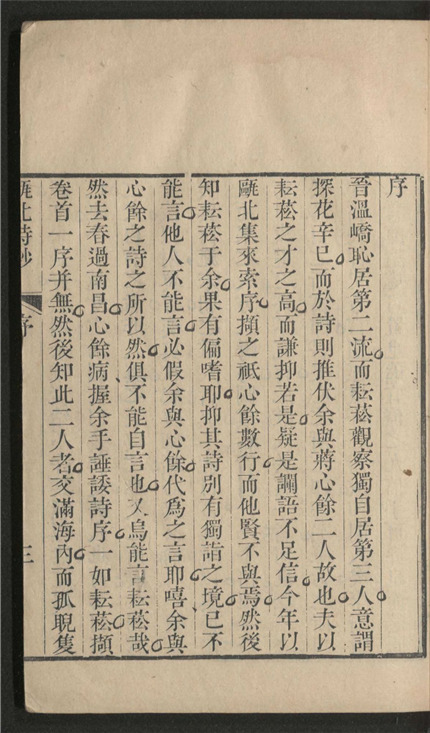 序
晉溫嶠恥居第二流而耘菘觀察獨自居第三人意謂
探花辛巳而於詩則推伏余與蔣心餘二人故也夫以
耘菘之才之高而謙抑若是疑是讕語不足信今年以
甌北集來索序擷之祗心餘數行而他賢不與焉然後
知耘菘于余果有偏嗜耶抑其詩別有獨詣之境已不
能言他人不能言必假余與心餘代為之言耶嘻余與
心餘之詩之所以然俱不能自言也又烏能言耘菘哉
然去春過南昌心餘病握余手諈諉詩序一如耘菘擷
卷首一序并無然後知此二人者交滿海內而孤睨隻
甌北詩鈔 序 三